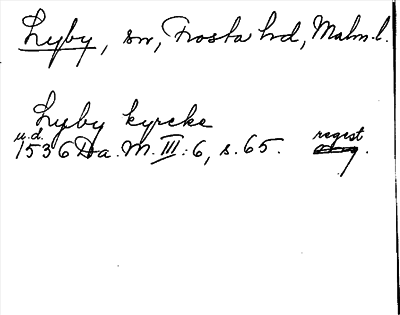 Lyby, sn, Frosta hd, Malm. l.
Lyby kyrcke
u.d. regest
1536 Da. M. III: 6, s. 65.